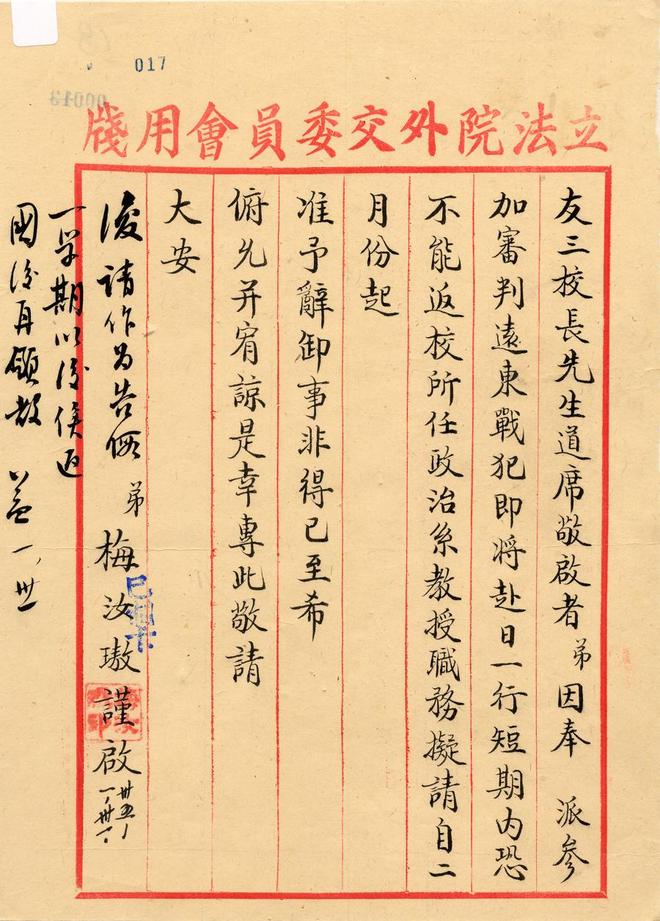 017
00013
立法院外交委員會用牋
友三校長先生道席敬啟者弟因奉 派參
加審判遠東戰犯即將赴日一行短期內恐
不能返校所任政治系教授職務擬請自二
月份起
准予辭卸事非得已至希
俯允并宥諒是幸專此敬請
大安
弟 梅汝璈 謹啟 卅五、一、卅一、
復請作為告假
一學期以後俟返
國後再領教 益 一、卅